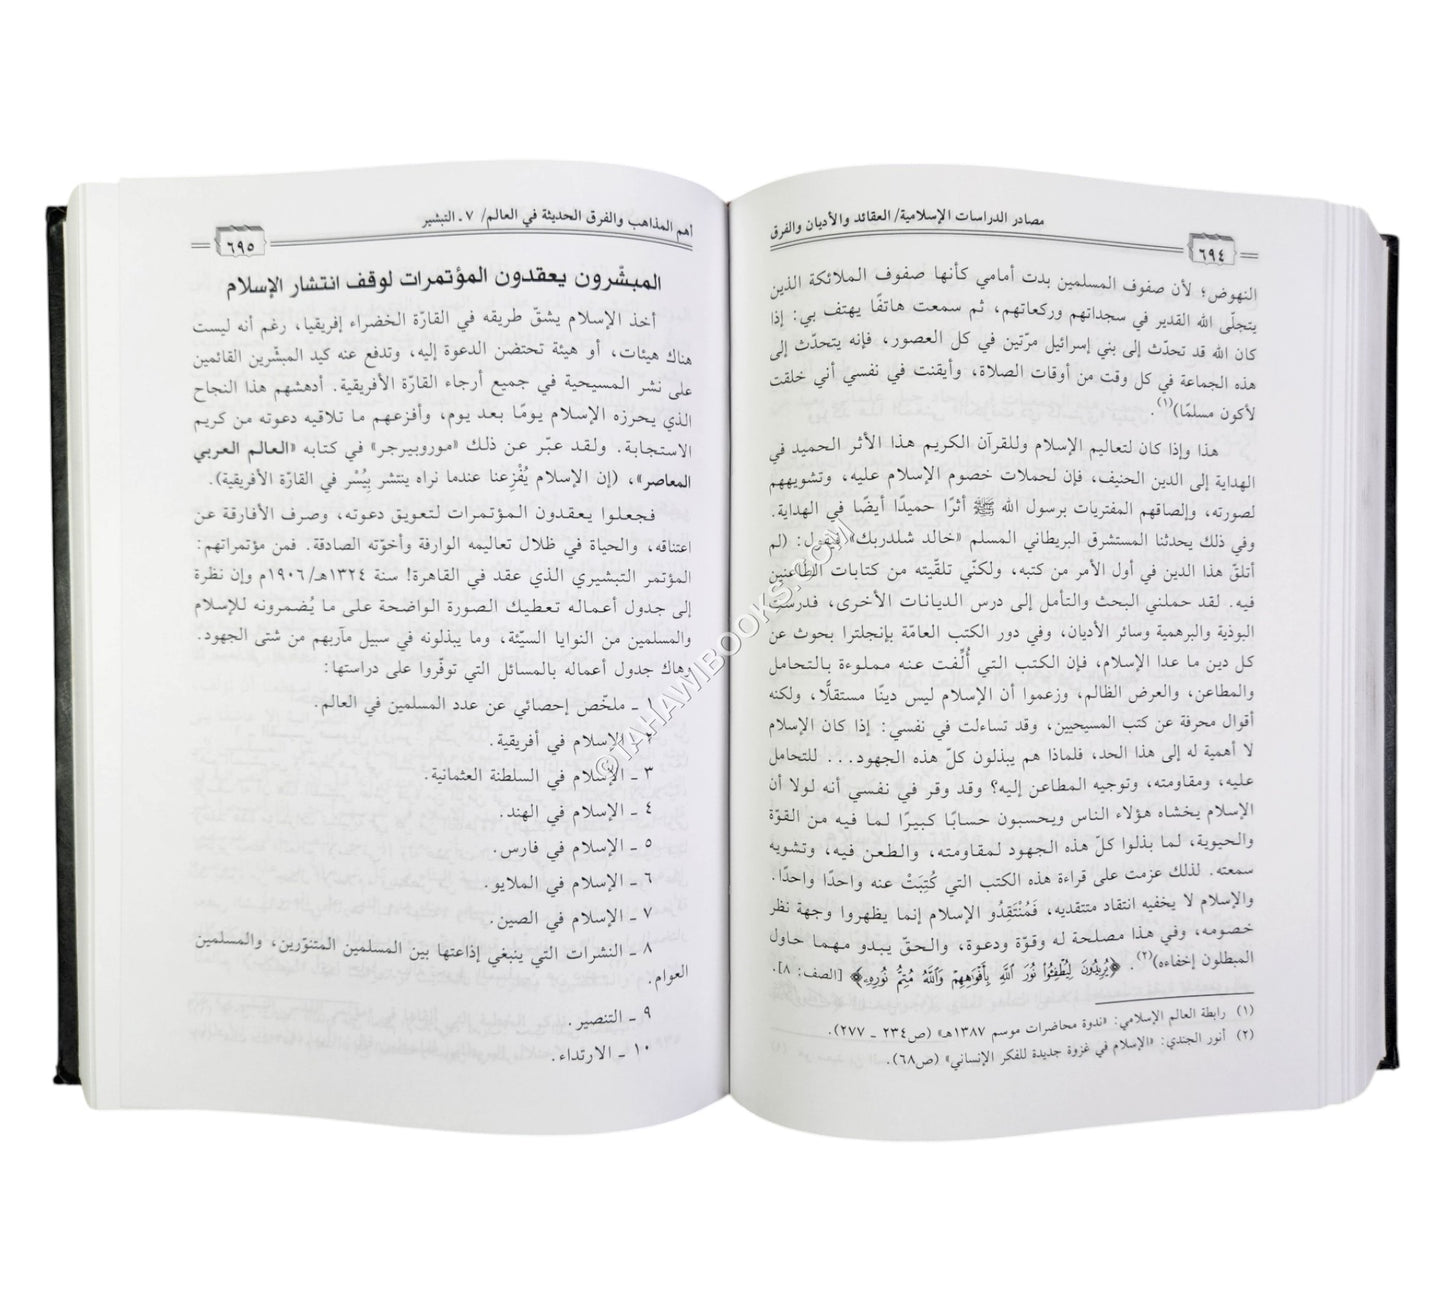 مصادر الدراسات الإسلامية/ العقائد والأديان والفرق
٦٩٤
النهوض؛ لأن صفوف المسلمين بدت أمامي كأنها صفوف الملائكة الذين
يتجلّى الله القدير في سجداتهم وركعاتهم، ثم سمعت هاتفًا يهتف بي: إذا
كان الله قد تحدّث إلى بني إسرائيل مرّتين في كل العصور، فإنه يتحدّث إلى
هذه الجماعة في كل وقت من أوقات الصلاة، وأيقنت في نفسي أني خلقت
لأكون مسلمًا)(١).
هذا وإذا كان لتعاليم الإسلام وللقرآن الكريم هذا الأثر الحميد في
الهداية إلى الدين الحنيف، فإن لحملات خصوم الإسلام عليه، وتشويههم
لصورته، وإلصاقهم المفتريات برسول الله ﷺ أثرًا حميدًا أيضًا في الهداية.
وفي ذلك يحدثنا المستشرق البريطاني المسلم «خالد شلدربك» فيقول: (لم
أتلقّ هذا الدين في أول الأمر من كتبه، ولكنّي تلقّيته من كتابات الطاعنين
فيه. لقد حملني البحث والتأمل إلى درس الديانات الأخرى، فدرست
البوذية والبرهمية وسائر الأديان، وفي دور الكتب العامّة بإنجلترا بحوث عن
كل دين ما عدا الإسلام، فإن الكتب التي أُلِّفت عنه مملوءة بالتحامل
والمطاعن، والعرض الظالم، وزعموا أن الإسلام ليس دينًا مستقلًّا، ولكنه
أقوال محرفة عن كتب المسيحيين، وقد تساءلت في نفسي: إذا كان الإسلام
لا أهمية له إلى هذا الحد، فلماذا هم يبذلون كلّ هذه الجهود... للتحامل
عليه، ومقاومته، وتوجيه المطاعن إليه؟ وقد وقر في نفسي أنه لولا أن
الإسلام يخشاه هؤلاء الناس ويحسبون حسابًا كبيرًا لما فيه من القوّة
والحيوية، لما بذلوا كلّ هذه الجهود لمقاومته، والطعن فيه، وتشويه
سمعته. لذلك عزمت على قراءة هذه الكتب التي كُتِبَتْ عنه واحدًا واحدًا.
والإسلام لا يخفيه انتقاد منتقديه، فَمُنْتَقِدُو الإسلام إنما يظهروا وجهة نظر
خصومه، وفي هذا مصلحة له وقوّة ودعوة، والحقّ يبدو مهما حاول
المبطلون إخفاءه)(٢). ﴿يُرِيدُونَ لِيُطْفِئُوا۟ نُورَ ٱللَّهِ بِأَفْوَٰهِهِمْ وَٱللَّهُ مُتِمُّ نُورِهِۦ﴾ [الصف: ٨].
(١) رابطة العالم الإسلامي: «ندوة محاضرات موسم ١٣٨٧هـ» (ص٢٣٤ ـ ٢٧٧).
(٢) أنور الجندي: «الإسلام في غزوة جديدة للفكر الإنساني» (ص٦٨).
أهم المذاهب والفرق الحديثة في العالم/ ٧ـ التبشير
٦٩٥
المبشّرون يعقدون المؤتمرات لوقف انتشار الإسلام
أخذ الإسلام يشقّ طريقه في القارّة الخضراء إفريقيا، رغم أنه ليست
هناك هيئات، أو هيئة تحتضن الدعوة إليه، وتدفع عنه كيد المبشّرين القائمين
على نشر المسيحية في جميع أرجاء القارّة الأفريقية. أدهشهم هذا النجاح
الذي يحرزه الإسلام يومًا بعد يوم، وأفزعهم ما تلاقيه دعوته من كريم
الاستجابة. ولقد عبّر عن ذلك «موروبيرجر» في كتابه «العالم العربي
المعاصر»، (إن الإسلام يُفْزِعنا عندما نراه ينتشر بِيُسْر في القارّة الأفريقية).
فجعلوا يعقدون المؤتمرات لتعويق دعوته، وصرف الأفارقة عن
اعتناقه، والحياة في ظلال تعاليمه الوارفة وأخوّته الصادقة. فمن مؤتمراتهم:
المؤتمر التبشيري الذي عقد في القاهرة! سنة ١٣٢٤هـ/ ١٩٠٦م وإن نظرة
إلى جدول أعماله تعطيك الصورة الواضحة على ما يُضمرونه للإسلام
والمسلمين من النوايا السيّئة، وما يبذلونه في سبيل مآربهم من شتى الجهود.
وهاك جدول أعماله بالمسائل التي توفّروا على دراستها:
١ ـ ملخّص إحصائي عن عدد المسلمين في العالم.
٢ ـ الإسلام في أفريقية.
٣ ـ الإسلام في السلطنة العثمانية.
٤ ـ الإسلام في الهند.
٥ ـ الإسلام في فارس.
٦ ـ الإسلام في الملايو.
٧ ـ الإسلام في الصين.
٨ ـ النشرات التي ينبغي إذاعتها بين المسلمين المتنوّرين، والمسلمين
العوام.
٩ ـ التنصير.
١٠ ـ الارتداء.
©TAHAWIBOOKS.COM